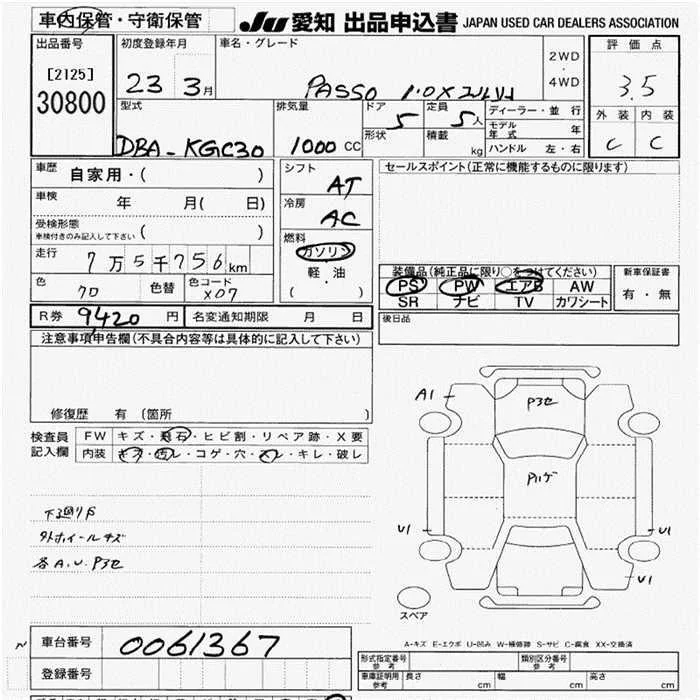 車内保管・守衛保管
JU 愛知 出品申込書 JAPAN USED CAR DEALERS ASSOCIATION
出品番号
[2125]
30800
初度登録年月
23 3月
車名・グレード
PASSO 1.0X
2WD
・
4WD
評価点
3.5
外装 内装
C C
型式
DBA-KGC30
排気量
1000 CC
ドア 5
形状
定員 5人
積載 kg
ディーラー・並行
モデル年式 年
ハンドル 左・右
車歴 自家用・( )
車検 年 月( 日)
受検形態
車検付きのみ記入して下さい ( )
走行 7万5千756km
色 クロ 色替 色コード X07
シフト AT
冷房 AC
燃料
ガソリン
軽・油
( )
セールスポイント(正常に機能するものに限ります)
装備品(純正品に限り○をつけてください)
PS PW エアB AW
SR ナビ TV カワシート
新車保証書
有・無
R券 9420 円 名変通知期限 月 日
後日品
注意事項申告欄(不具合内容等は具体的に記入して下さい)
修復歴 有 (箇所 )
検査員記入欄
FW キズ・飛石・ヒビ割・リペア跡・X要
内装 キズ・汚レ・コゲ・穴・スレ・キレ・破レ
下廻りP
タトホイールキズ
各A.U.Pヨセ
A1
Pヨセ
Pハゲ
U1
U1
U1
スペア
A-キズ E-エクボ U-凹み W-補修跡 S-サビ C-腐食 XX-交換済
車台番号 0061367
登録番号
形式指定番号
参考
類別区分番号
参考
車庫証明用
参考
長さ cm 幅 cm 高さ cm